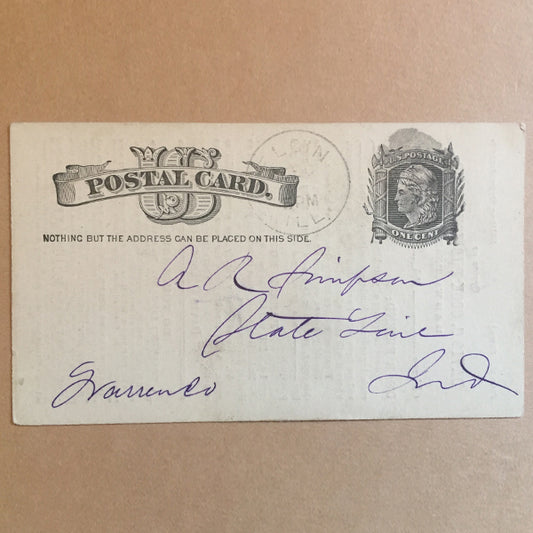 U.S. POSTAGE
US
POSTAL CARD.
PM
ILL.
ONE CENT
NOTHING BUT THE ADDRESS CAN BE PLACED ON THIS SIDE.
A R Simpson
State Line
Warren Co Ind